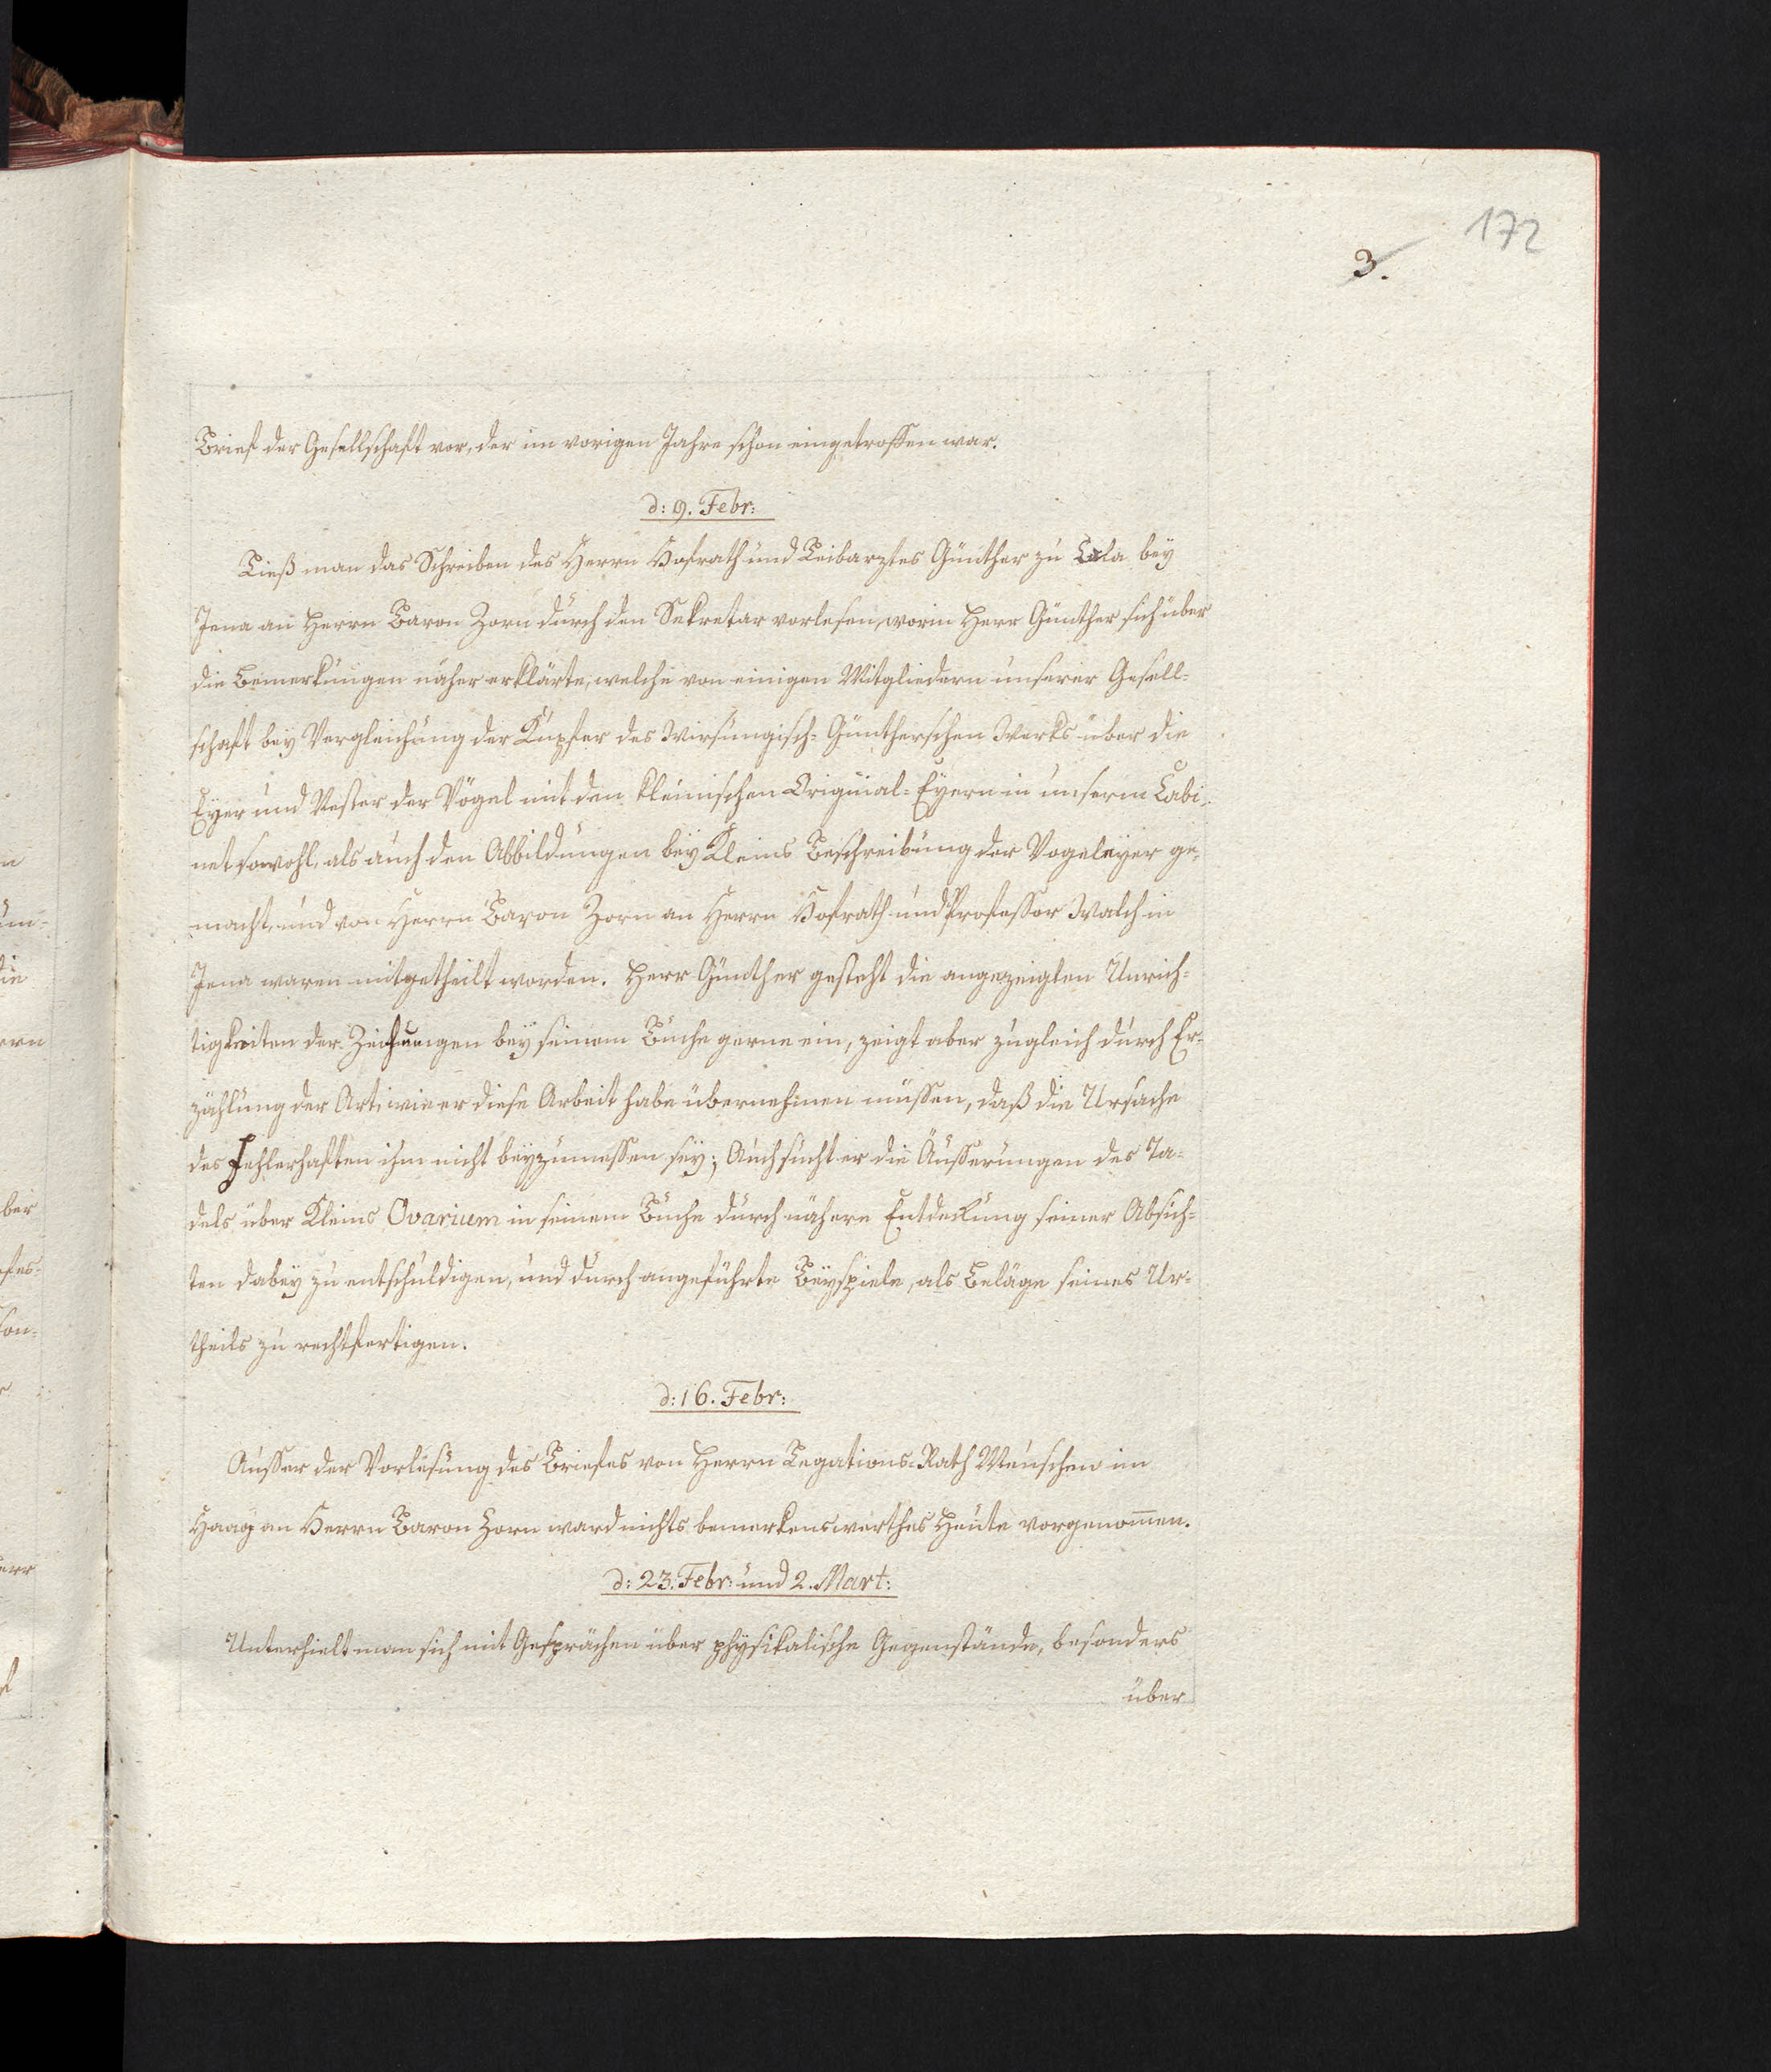 172
3.
Brief der Gesellschaft vor, der im vorigen Jahre schon eingetroffen war.
d: 9. Febr:
Ließ man das Schreiben des Herrn Hofrath und Leibarztes Günther zu Cala bey
Jena an Herrn Baron Zorn durch den Sekretar vorlesen, worin Herr Günther sich über
die Bemerkungen näher erklärte, welche von einigen Mitgliedern unserer Gesell-
schaft bey Vergleichung der Kupfer des Wirsingisch-Güntherschen Werks über die
Eyer und Nester der Vögel mit den Kleinischen Original-Eyern in unserm Cabi-
net sowohl, als auch den Abbildungen bey Kleins Beschreibung der Vogeleyer ge-
macht, und von Herrn Baron Zorn an Herrn Hofrath und Professor Walch in
Jena waren mitgetheilt worden. Herr Günther gesteht die angezeigten Unrich-
tigkeiten der Zeichnungen bey seinem Buche gerne ein, zeigt aber zugleich durch Er-
zählung der Art, wie er diese Arbeit habe übernehmen müssen, daß die Ursache
des Fehlerhaften ihm nicht beyzumessen sey; Auch sucht er die Äusserungen des Ta-
dels über Kleins Ovarium in seinem Buche durch nähere Entdeckung seiner Absich-
ten dabey zu entschuldigen, und durch angeführte Beyspiele, als Beläge seines Ur-
theils zu rechtfertigen.
d: 16. Febr:
Ausser der Vorlesung des Briefes von Herrn Legations-Rath Meuschen im
Haag an Herrn Baron Zorn ward nichts bemerkenswerthes heute vorgenom̄en.
d: 23. Febr: und 2. Mart:
Unterhielt man sich mit Gesprächen über physikalische Gegenstände, besonders
über